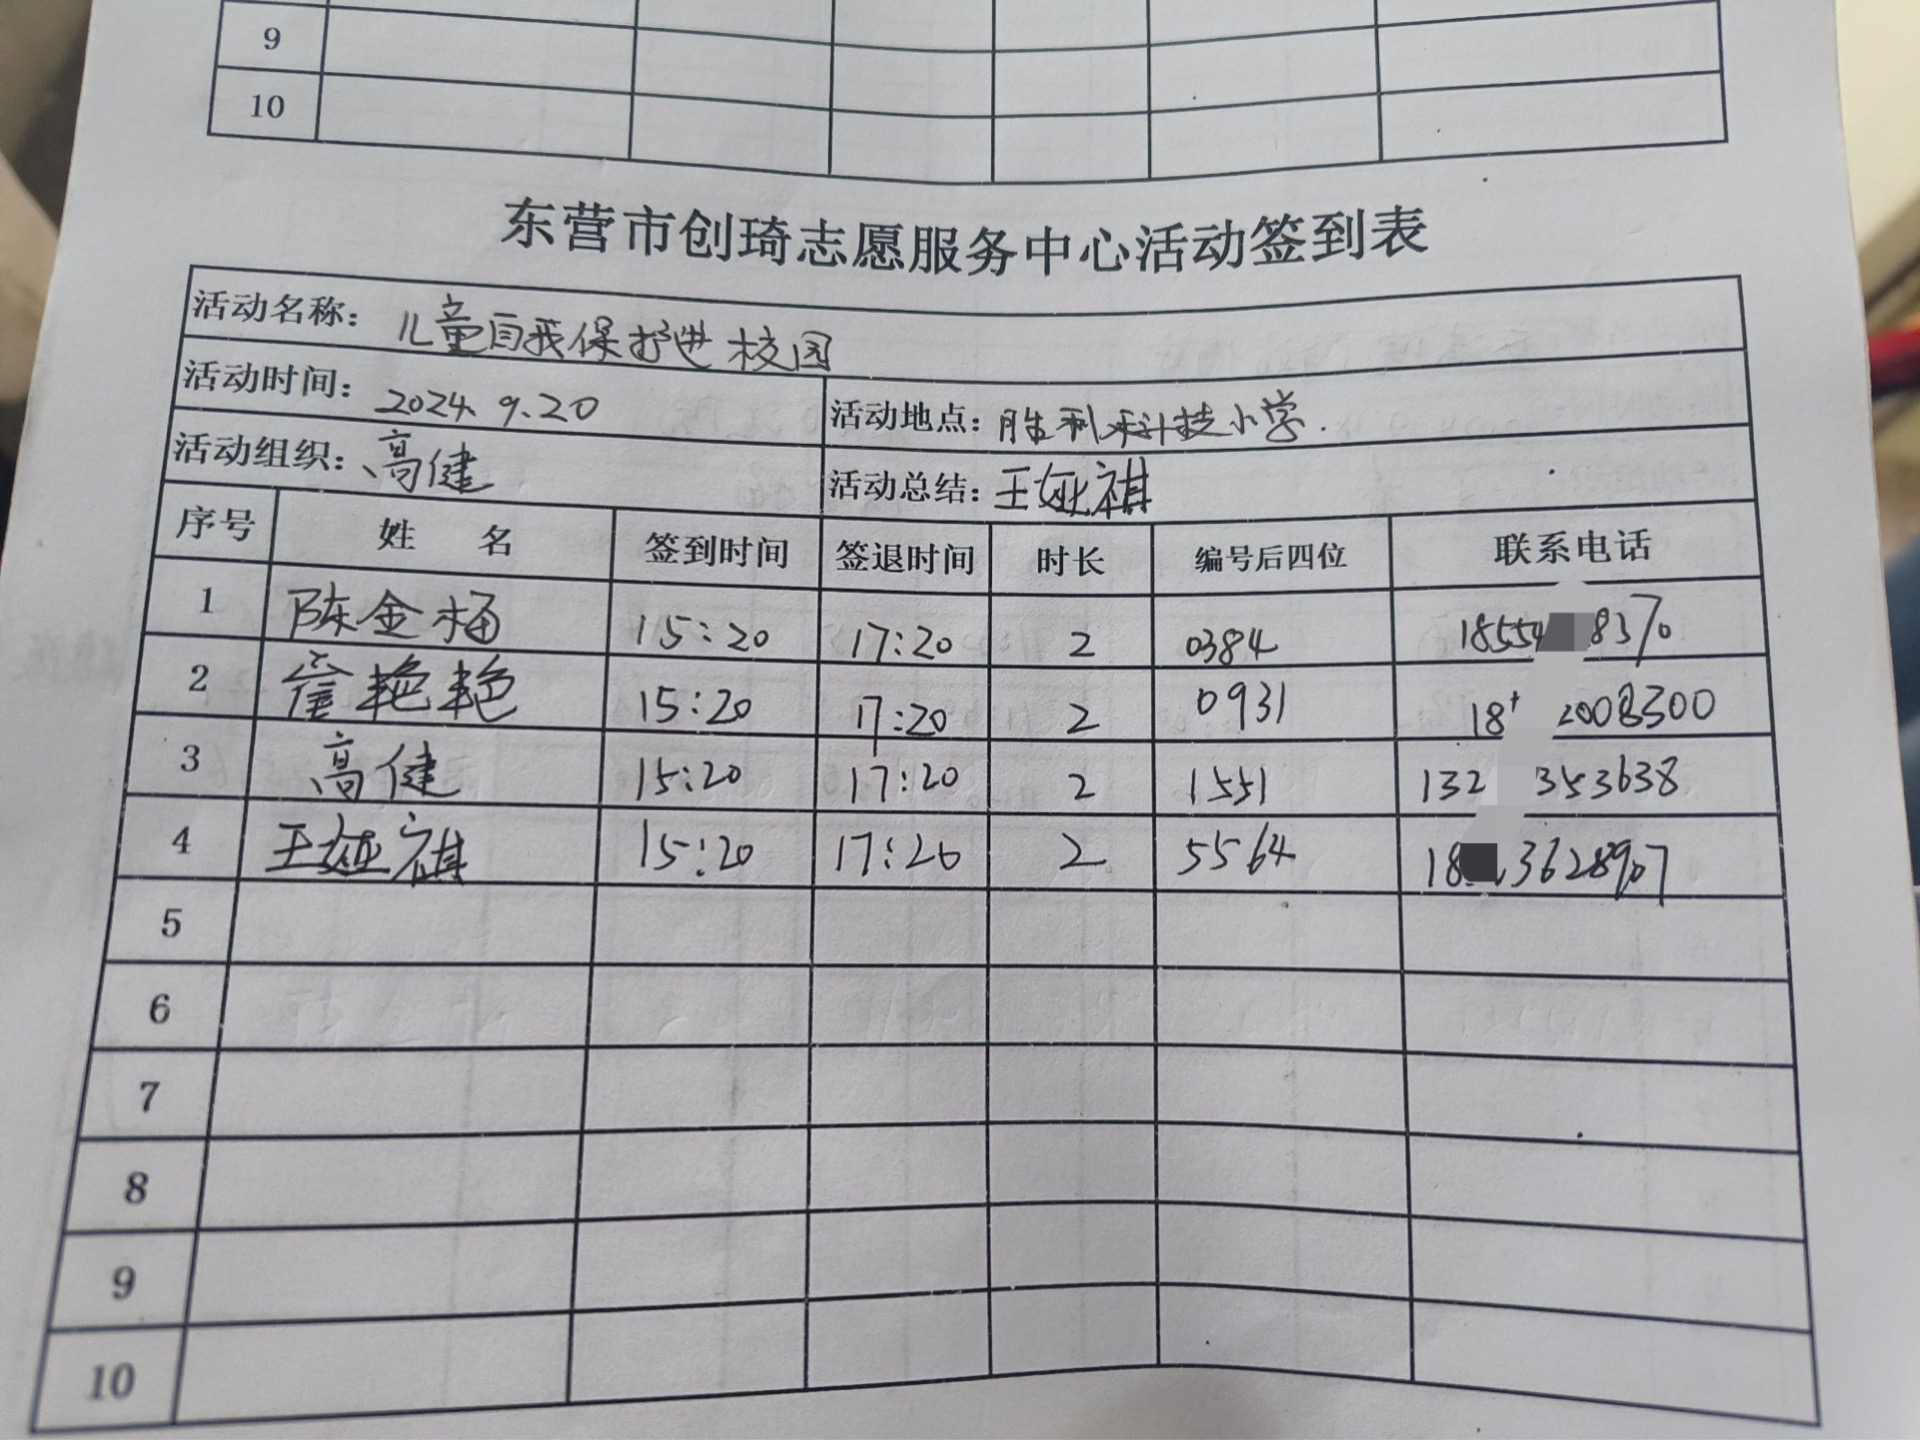 9
10
东营市创琦志愿服务中心活动签到表
活动名称: 儿童自我保护进校园
活动时间: 2024.9.20 活动地点: 胜利科技小学.
活动组织: 高健 活动总结: 王娅祺
序号 姓 名 签到时间 签退时间 时长 编号后四位 联系电话
1 陈金梅 15:20 17:20 2 0384 1855 8370
2 艳艳 15:20 17:20 2 0931 18 2008300
3 高健 15:20 17:20 2 1551 132 353638
4 王娅祺 15:20 17:20 2 5564 18 3628907
5
6
7
8
9
10